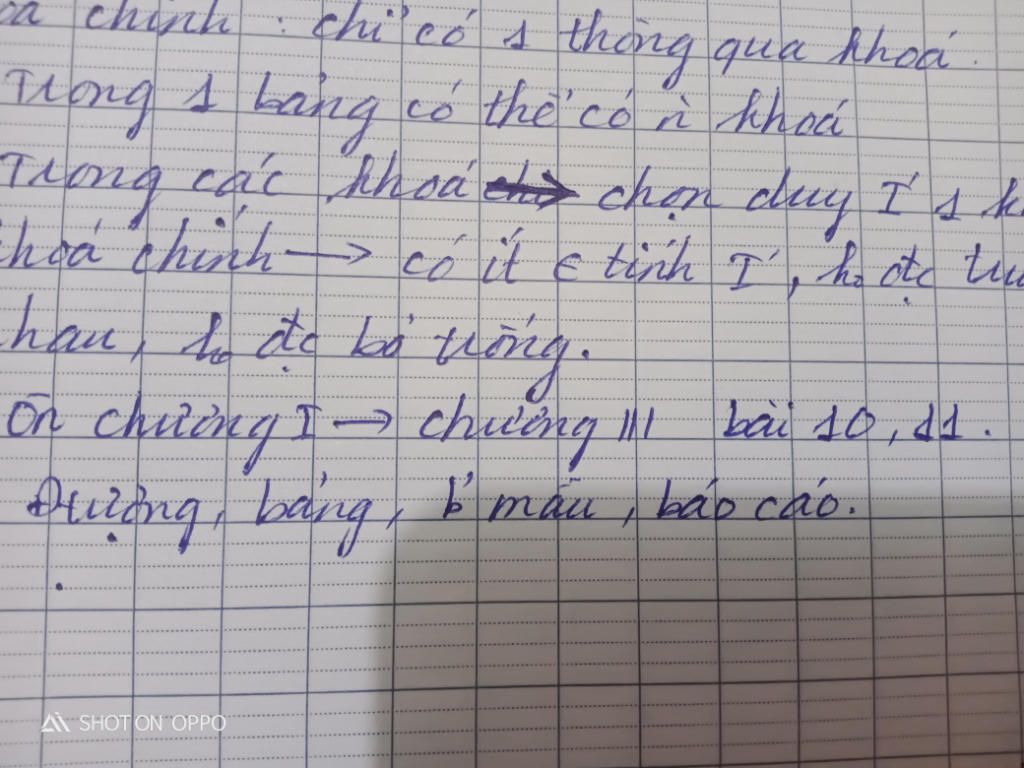 oá chính : chỉ có 1 thông qua khoá.
Trong 1 bảng có thể có n` khoá
Trong các khoá chọn duy I' 1 k
hoá chính → có ít є tính I', ko đc tru
hau, ko đc bỏ trống.
Ôn chương I → chương III bài 10, 11.
Đượng, bảng, b' mẫu, báo cáo.
SHOT ON OPPO